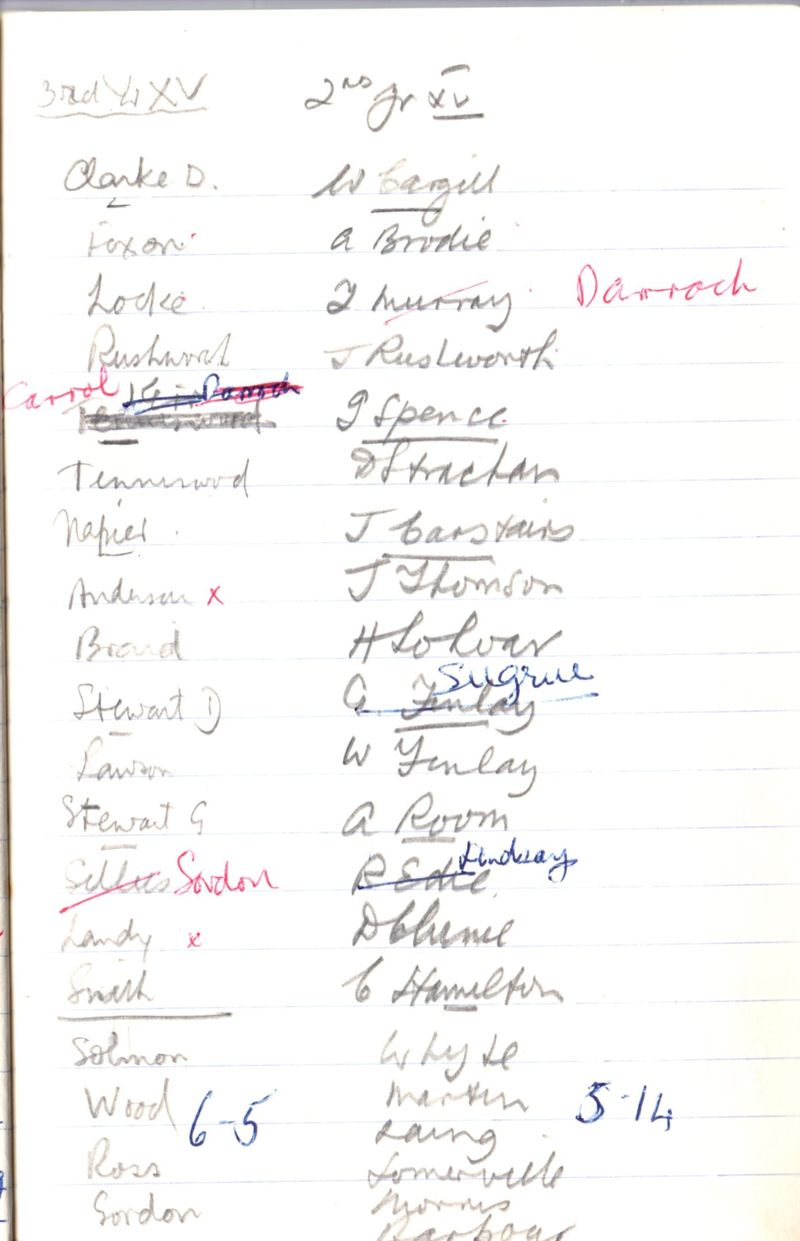 3rd Yr XV 2nd yr XV
Clarke D. W Cargill
Foxon A Brodie
Locke J Murray Darroch
Rushworth J Rushworth
Carrol Darroch
G Spence
Tenneswood D Strachan
Napier J Carstairs
Anderson x J Thomson
Brand H Lohoar
Sugrue
Stewart D G. Finlay
Lawson W Finlay
Stewart G A Room
Lindsay
Gordon R Edie
Landy x D Clunie
Smith C Hamilton
Solmon Whyte
Wood 6-5 Martin 5-14
Laing
Ross Somerville
Gordon Morris
Barbour